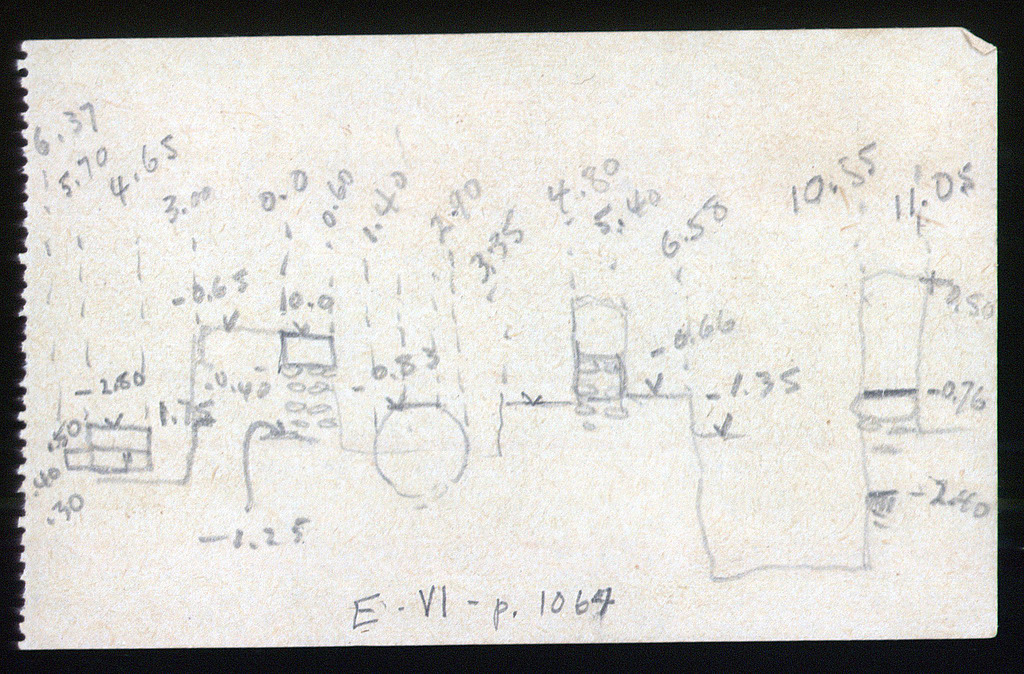 6.37
5.70
4.65
3.00
0.0
0.60
1.40
2.90
3.35
4.80
5.40
6.58
10.55
11.05
-0.65
10.0
+0.50
-0.66
-2.80
-0.40
-0.83
-1.35
-0.76
1.75
.50
.40
.30
-2.40
-1.25
E - VI - p. 1064